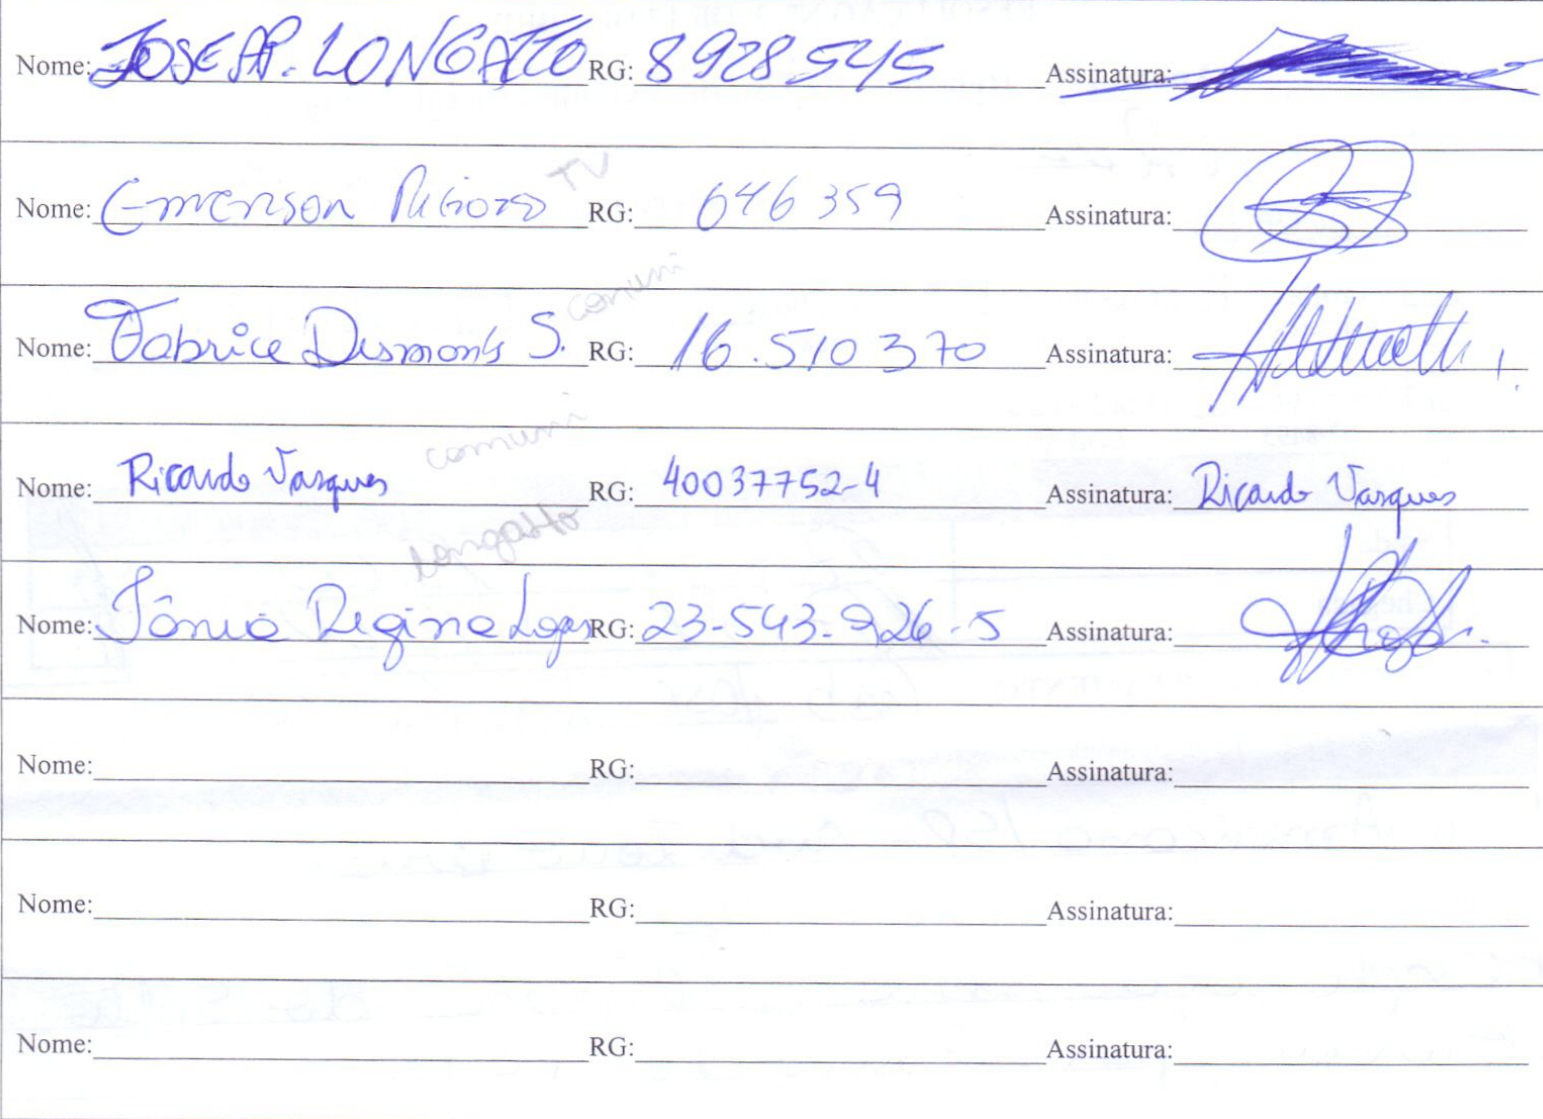 Nome: JOSE AP. LONGATTO RG: 8928545 Assinatura:
TV
Nome: Emerson RG: 646359 Assinatura:
comuni
Nome: Fabrice Desmonts S. RG: 16.510370 Assinatura:
comuni
Nome: Ricardo Vasques RG: 40037752-4 Assinatura: Ricardo Vasques
longatto
Nome: Tânia Regina Lopes RG: 23-543-926-5 Assinatura:
Nome: RG: Assinatura:
Nome: RG: Assinatura:
Nome: RG: Assinatura: